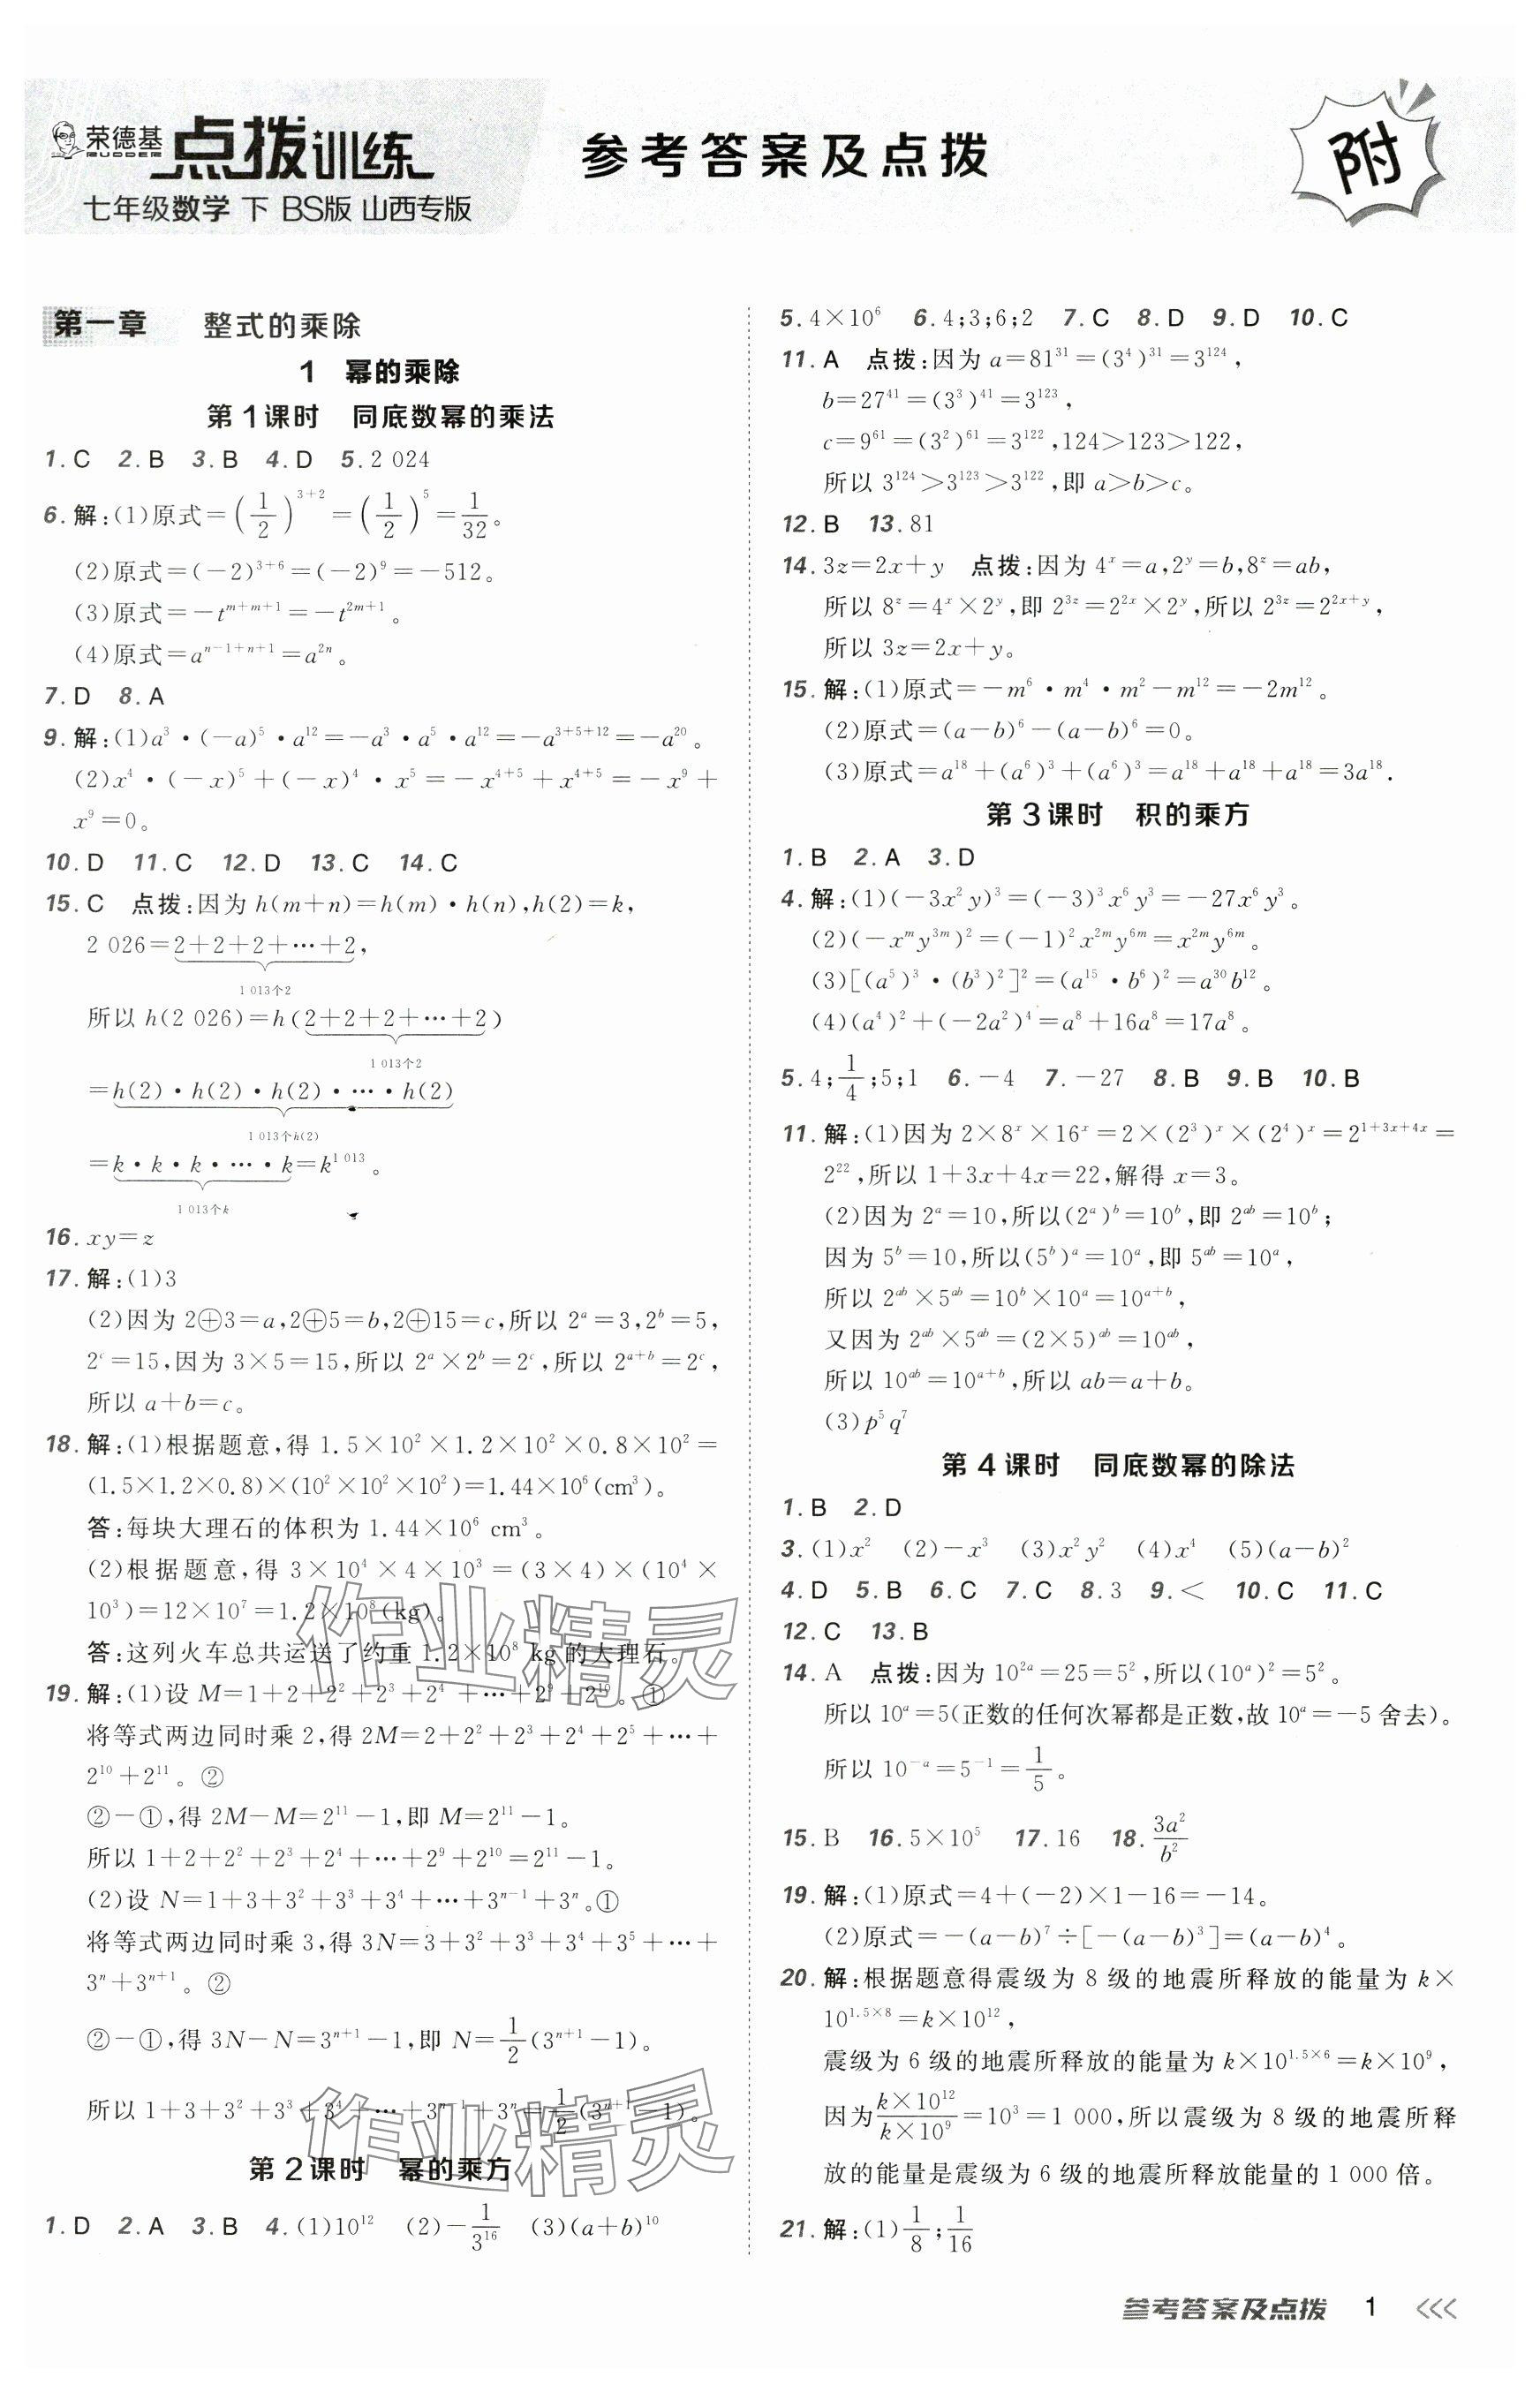 荣德基
RUDDER
点拨训练
七年级数学 下 BS版 山西专版
参考答案及点拨
附
第一章 整式的乘除
1 幂的乘除
第1课时 同底数幂的乘法
1.C 2.B 3.B 4.D 5.2 024
6.解:(1)原式=(1/2)^{3+2}=(1/2)^5=1/32。
(2)原式=(-2)^{3+6}=(-2)^9=-512。
(3)原式=-t^{m+m+1}=-t^{2m+1}。
(4)原式=a^{n-1+n+1}=a^{2n}。
7.D 8.A
9.解:(1)a³·(-a)⁵·a¹²=-a³·a⁵·a¹²=-a^{3+5+12}=-a²⁰。
(2)x⁴·(-x)⁵+(-x)⁴·x⁵=-x^{4+5}+x^{4+5}=-x⁹+
x⁹=0。
10.D 11.C 12.D 13.C 14.C
15.C 点拨:因为h(m+n)=h(m)·h(n),h(2)=k,
2 026=2+2+2+…+2,
1 013个2
所以h(2 026)=h(2+2+2+…+2)
1 013个2
=h(2)·h(2)·h(2)·…·h(2)
1 013个h(2)
=k·k·k·…·k=k^{1 013}。
1 013个k
16.xy=z
17.解:(1)3
(2)因为2⊕3=a,2⊕5=b,2⊕15=c,所以2^a=3,2^b=5,
2^c=15,因为3×5=15,所以2^a×2^b=2^c,所以2^{a+b}=2^c,
所以a+b=c。
18.解:(1)根据题意,得1.5×10²×1.2×10²×0.8×10²=
(1.5×1.2×0.8)×(10²×10²×10²)=1.44×10⁶(cm³)。
答:每块大理石的体积为1.44×10⁶ cm³。
(2)根据题意,得3×10⁴×4×10³=(3×4)×(10⁴×
10³)=12×10⁷=1.2×10⁸(kg)。
答:这列火车总共运送了约重1.2×10⁸ kg的大理石。
19.解:(1)设M=1+2+2²+2³+2⁴+…+2⁹+2¹⁰。①
将等式两边同时乘2,得2M=2+2²+2³+2⁴+2⁵+…+
2¹⁰+2¹¹。②
②-①,得2M-M=2¹¹-1,即M=2¹¹-1。
所以1+2+2²+2³+2⁴+…+2⁹+2¹⁰=2¹¹-1。
(2)设N=1+3+3²+3³+3⁴+…+3^{n-1}+3^n。①
将等式两边同时乘3,得3N=3+3²+3³+3⁴+3⁵+…+
3^n+3^{n+1}。②
②-①,得3N-N=3^{n+1}-1,即N=1/2(3^{n+1}-1)。
所以1+3+3²+3³+3⁴+…+3^{n-1}+3^n=1/2(3^{n+1}-1)。
第2课时 幂的乘方
1.D 2.A 3.B 4.(1)10¹² (2)-1/3¹⁶ (3)(a+b)¹⁰
5.4×10⁶ 6.4;3;6;2 7.C 8.D 9.D 10.C
11.A 点拨:因为a=81³¹=(3⁴)³¹=3¹²⁴,
b=27⁴¹=(3³)⁴¹=3¹²³,
c=9⁶¹=(3²)⁶¹=3¹²²,124>123>122,
所以3¹²⁴>3¹²³>3¹²²,即a>b>c。
12.B 13.81
14.3z=2x+y 点拨:因为4^x=a,2^y=b,8^z=ab,
所以8^z=4^x×2^y,即2^{3z}=2^{2x}×2^y,所以2^{3z}=2^{2x+y},
所以3z=2x+y。
15.解:(1)原式=-m⁶·m⁴·m²-m¹²=-2m¹²。
(2)原式=(a-b)⁶-(a-b)⁶=0。
(3)原式=a¹⁸+(a⁶)³+(a⁶)³=a¹⁸+a¹⁸+a¹⁸=3a¹⁸.
第3课时 积的乘方
1.B 2.A 3.D
4.解:(1)(-3x²y)³=(-3)³x⁶y³=-27x⁶y³。
(2)(-x^m y^{3m})²=(-1)²x^{2m}y^{6m}=x^{2m}y^{6m}。
(3)[(a⁵)³·(b³)²]²=(a¹⁵·b⁶)²=a³⁰b¹²。
(4)(a⁴)²+(-2a²)⁴=a⁸+16a⁸=17a⁸。
5.4;1/4;5;1 6.-4 7.-27 8.B 9.B 10.B
11.解:(1)因为2×8^x×16^x=2×(2³)^x×(2⁴)^x=2^{1+3x+4x}=
2²²,所以1+3x+4x=22,解得x=3。
(2)因为2^a=10,所以(2^a)^b=10^b,即2^{ab}=10^b;
因为5^b=10,所以(5^b)^a=10^a,即5^{ab}=10^a,
所以2^{ab}×5^{ab}=10^b×10^a=10^{a+b},
又因为2^{ab}×5^{ab}=(2×5)^{ab}=10^{ab},
所以10^{ab}=10^{a+b},所以ab=a+b。
(3)p⁵q⁷
第4课时 同底数幂的除法
1.B 2.D
3.(1)x² (2)-x³ (3)x²y² (4)x⁴ (5)(a-b)²
4.D 5.B 6.C 7.C 8.3 9.< 10.C 11.C
12.C 13.B
14.A 点拨:因为10^{2a}=25=5²,所以(10^a)²=5²。
所以10^a=5(正数的任何次幂都是正数,故10^a=-5舍去)。
所以10^{-a}=5^{-1}=1/5。
15.B 16.5×10⁵ 17.16 18.3a²/b²
19.解:(1)原式=4+(-2)×1-16=-14。
(2)原式=-(a-b)⁷÷[-(a-b)³]=(a-b)⁴。
20.解:根据题意得震级为8级的地震所释放的能量为k×
10^{1.5×8}=k×10¹²,
震级为6级的地震所释放的能量为k×10^{1.5×6}=k×10⁹,
因为(k×10¹²)/(k×10⁹)=10³=1 000,所以震级为8级的地震所释
放的能量是震级为6级的地震所释放能量的1 000倍。
21.解:(1)1/8;1/16
作业精灵
作业精灵
参考答案及点拨 1